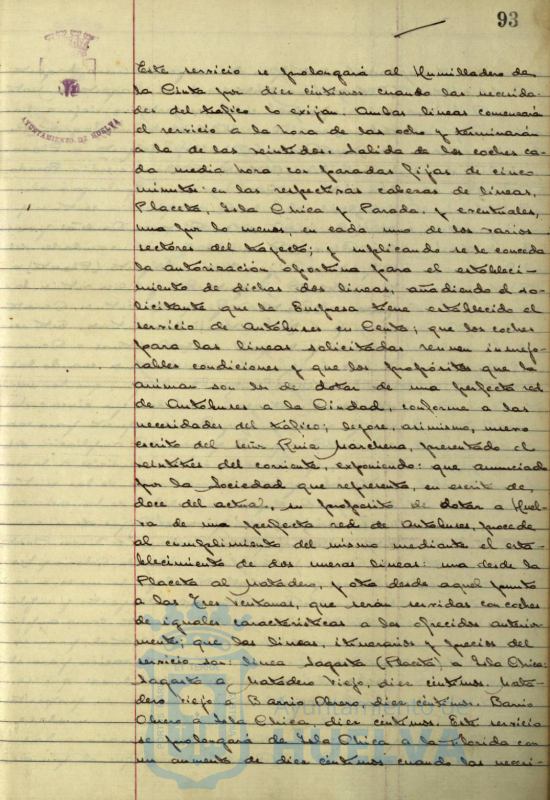 93
AYUNTAMIENTO DE HUELVA
Este servicio se prolongará al Humilladero de
la Cinta por diez céntimos cuando las necesida-
des del tráfico lo exijan. Ambas lineas comenzarán
el servicio a la hora de las ocho y terminarán
a la de las veintidos. Salida de los coches ca-
da media hora con paradas fijas de cinco
minutos en las respectivas cabezas de lineas,
Placeta, Isla Chica y Parada, y eventuales,
una por lo menos, en cada uno de los varios
sectores del trayecto; y suplicando se le conceda
la autorización oportuna para el estableci-
miento de dichas dos lineas, añadiendo el so-
licitante que la Empresa tiene establecido el
servicio de Autobuses en Ceuta; que los coches
para las lineas solicitadas reunen inmejo-
rables condiciones y que los propósitos que la
animan son los de dotar de una perfecta red
de Autobuses a la Ciudad, conforme a las
necesidades del tráfico; leyose, asimismo, nuevo
escrito del Señor Ruiz Marchena, presentado el
veintitres del corriente, exponiendo: que anunciado
por la Sociedad que representa, en escrito de
doce del actual, su propósito de dotar a Huel-
va de una perfecta red de Autobuses, procede
al cumplimiento del mismo mediante el esta-
blecimiento de dos nuevas lineas: una desde la
Placeta al Matadero, y otra desde aquel punto
a las Tres Ventanas, que serán servidas con coches
de iguales caracteristicas a los ofrecidos anterior-
mente; que las lineas, itinerarios y precios del
servicio son: linea Sagasta (Placeta) a Isla Chica:
Sagasta a Matadero Viejo, diez céntimos. Mata-
dero Viejo a Barrio Obrero, diez céntimos. Barrio
Obrero a Isla Chica, diez céntimos. Este servicio
se prolongará de Isla Chica a la Florida con
un aumento de diez céntimos cuando las necesi-
Ayuntamiento de
HUELVA